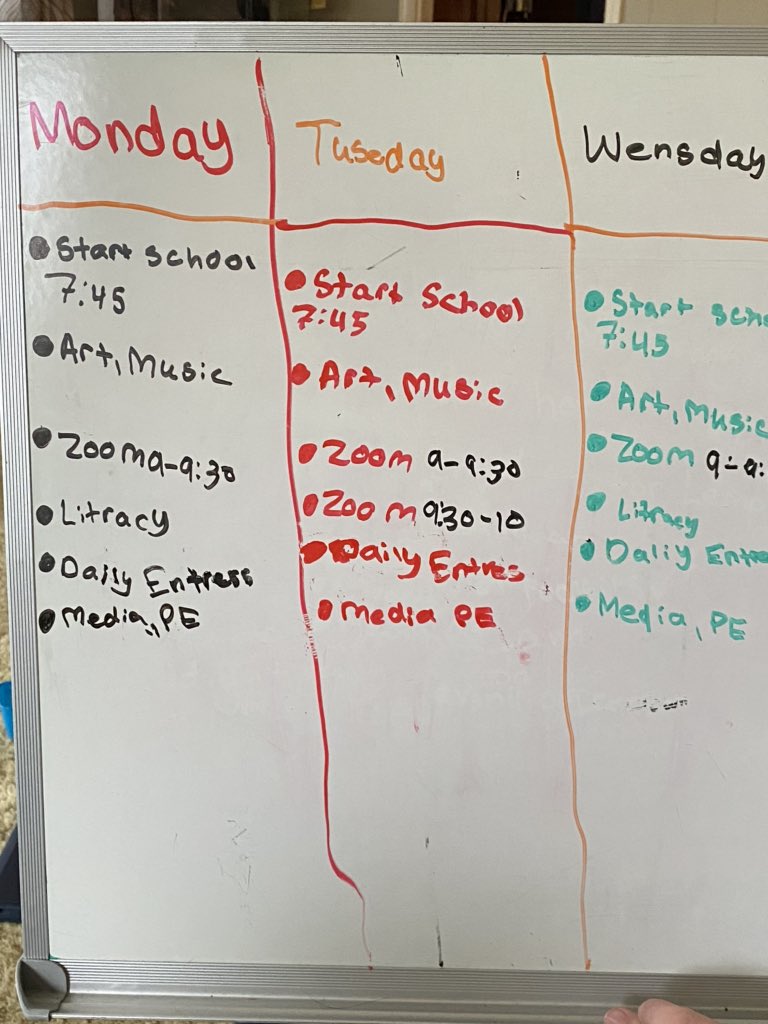 Monday
Start school
7:45
Art, Music
Zoom 9-9:30
Litracy
Daily Entress
Media, PE
Tuseday
Start School
7:45
Art, Music
Zoom 9-9:30
Zoom 9:30-10
Daily Entres
Media PE
Wensday
Start scho
7:45
Art, Music
Zoom 9-9:
Litracy
Daliy Entre
Media, PE